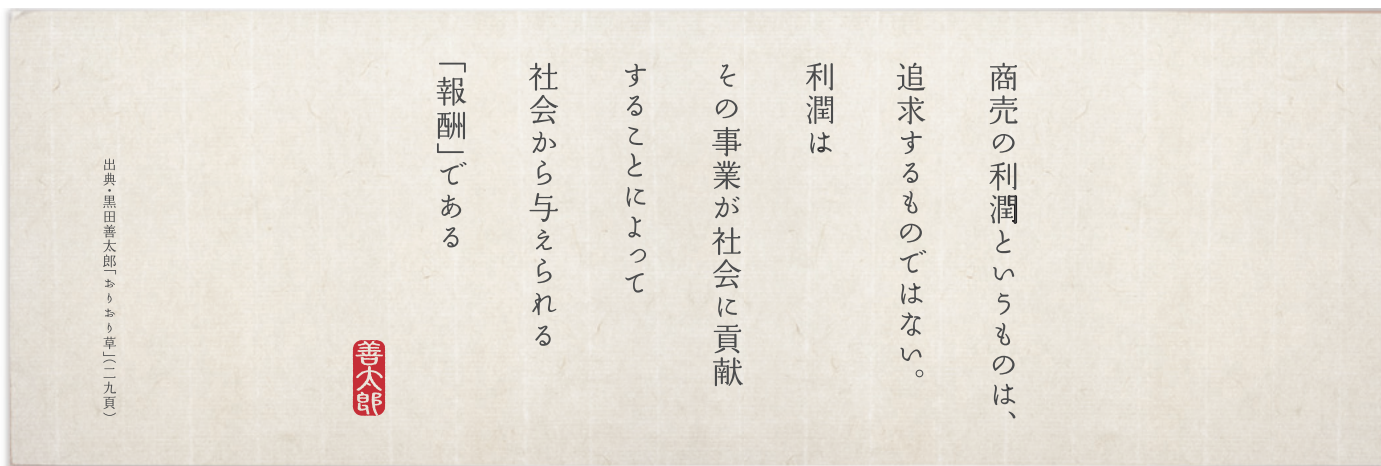 商売の利潤というものは、
追求するものではない。
利潤は
その事業が社会に貢献
することによって
社会から与えられる
「報酬」である
善太郎
出典・黒田善太郎「おりおり草」(二九頁)